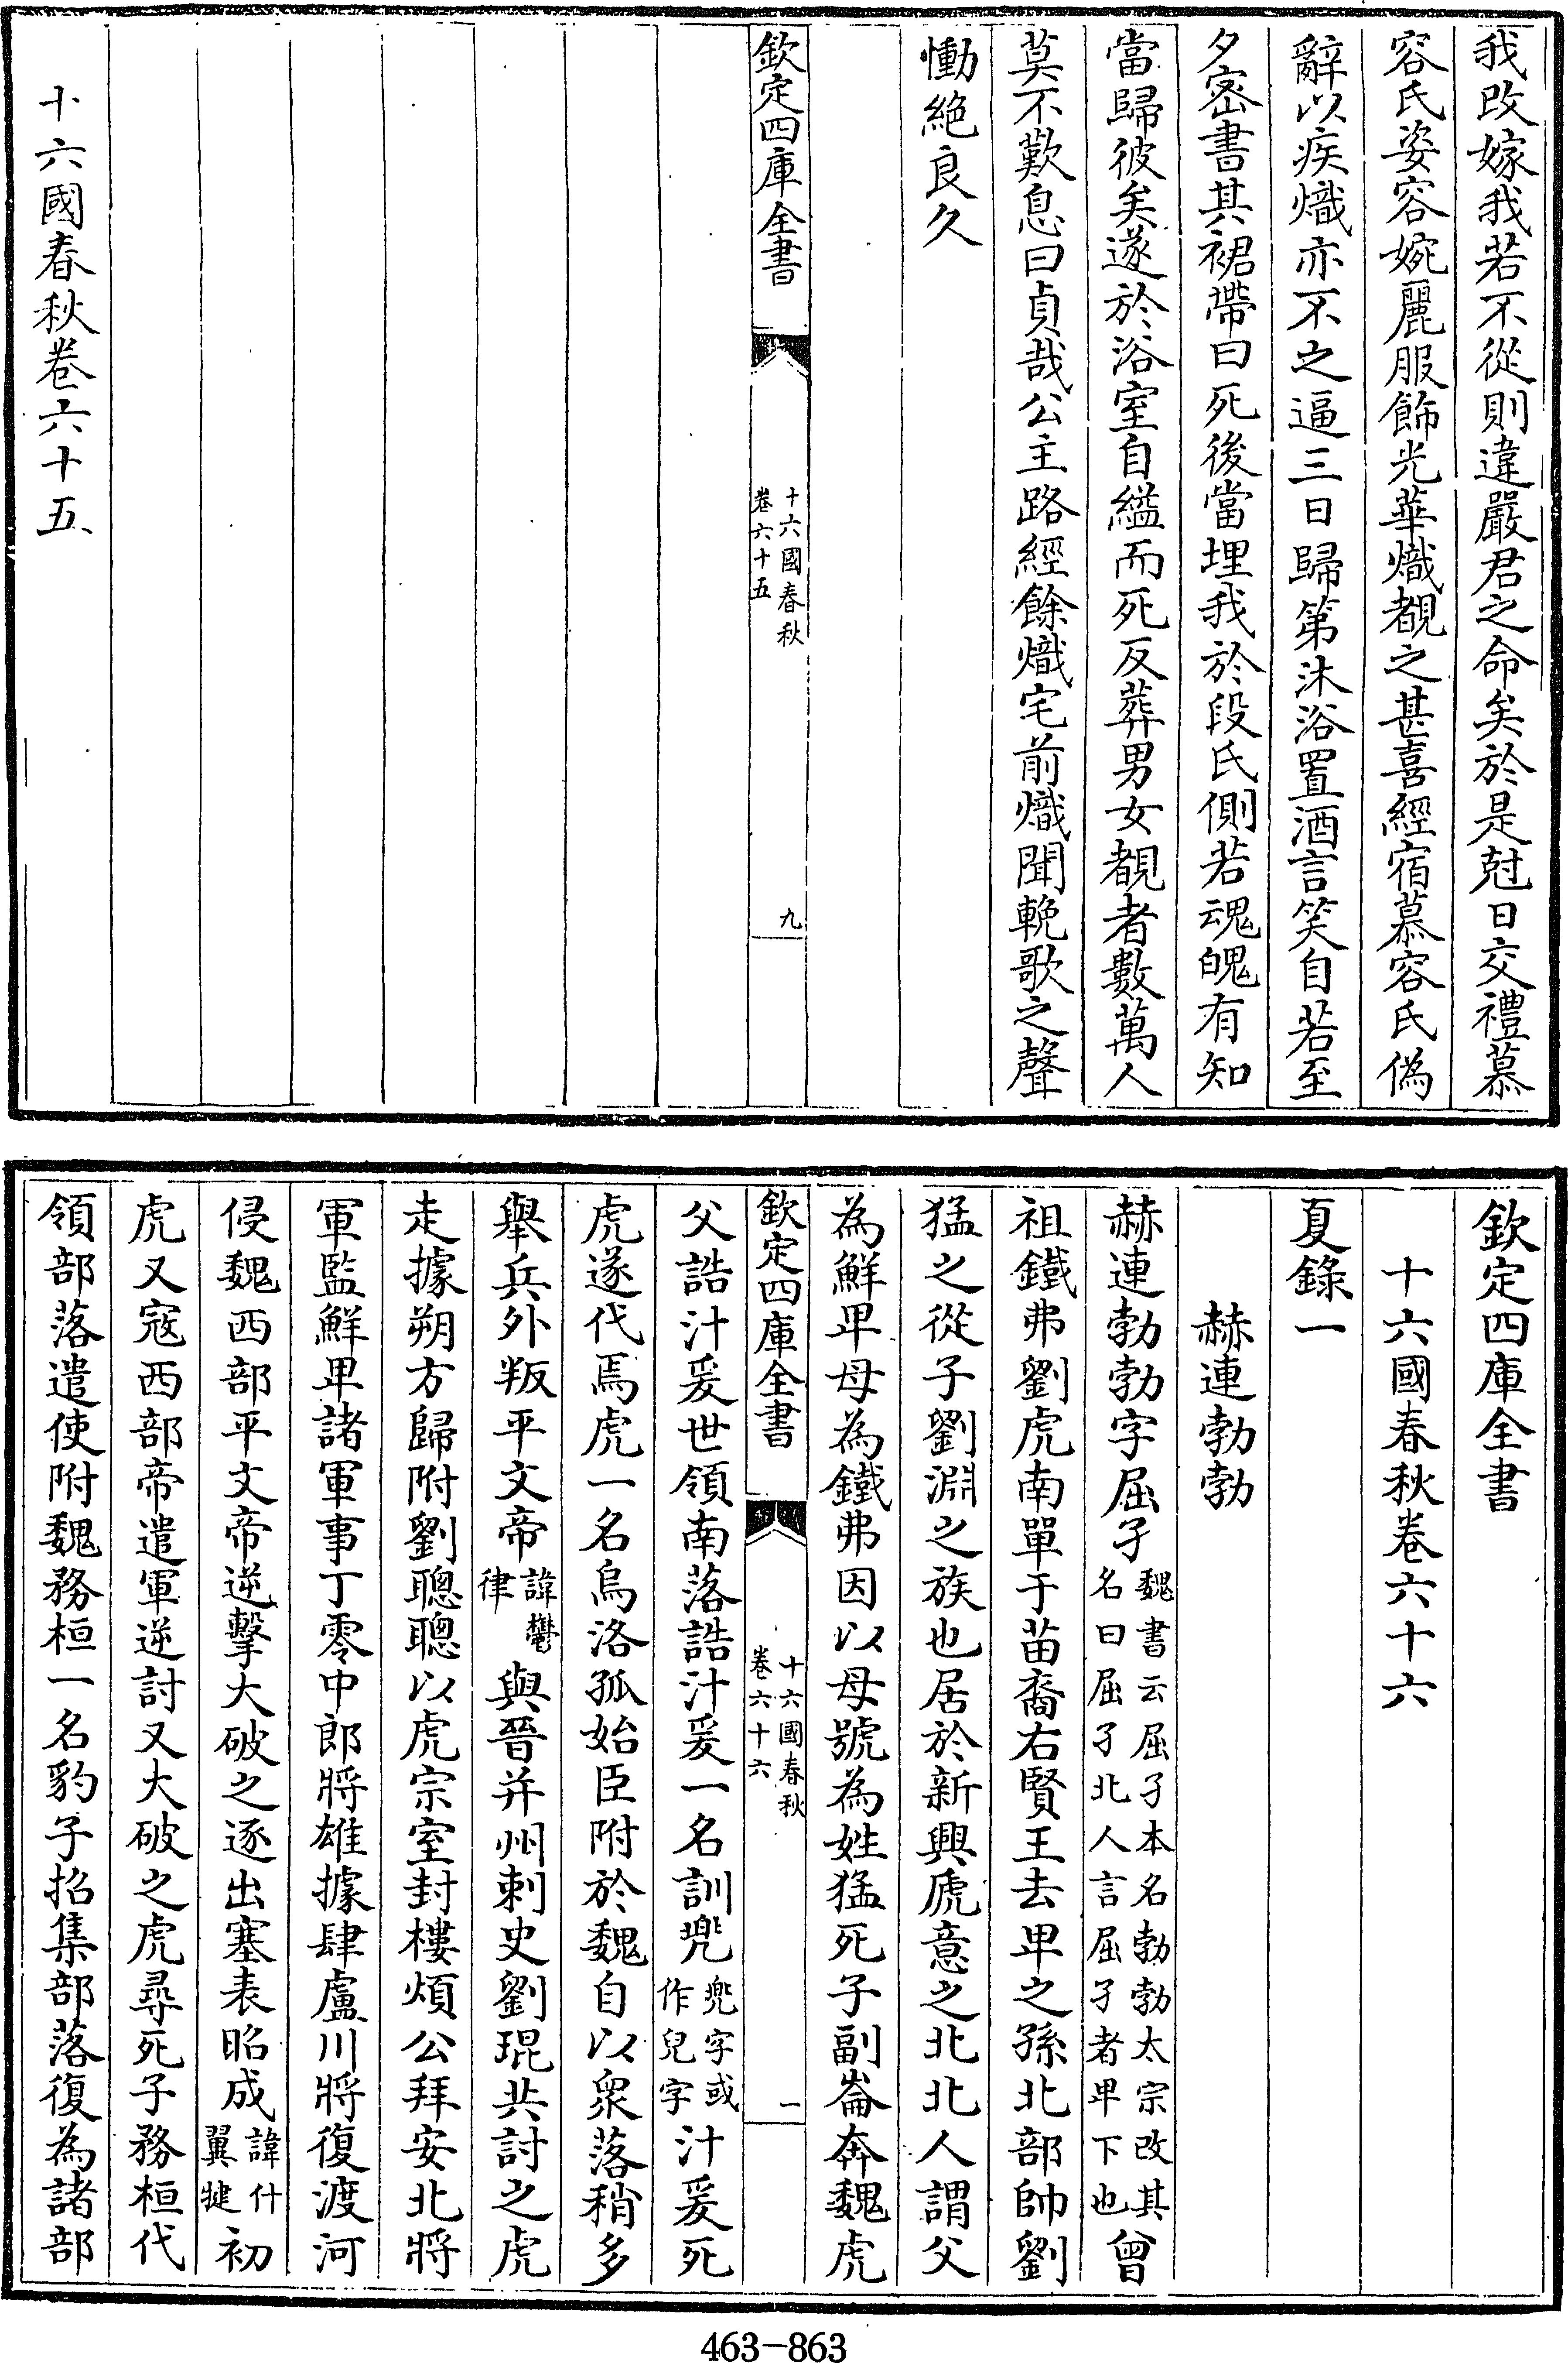 我改嫁我若不從則違嚴君之命矣於是尅日交禮慕
容氏姿容婉麗服飾光華熾覩之甚喜經宿慕容氏偽
辭以疾熾亦不之逼三日歸第沐浴置酒言笑自若至
夕密書其裙帶曰死後當埋我於段氏側若魂魄有知
當歸彼矣遂於浴室自縊而死及葬男女覩者數萬人
莫不歎息曰貞哉公主路經餘熾宅前熾聞輓歌之聲
慟絶良久
欽定四庫全書
十六國春秋
卷六十五
九
十六國春秋卷六十五
欽定四庫全書
十六國春秋卷六十六
夏錄一
赫連勃勃
赫連勃勃字屈孑魏書云屈孑本名勃勃太宗改其名曰屈孑北人言屈孑者卑下也曾
祖鐵弗劉虎南單于苗裔右賢王去卑之孫北部帥劉
猛之從子劉淵之族也居於新興虒意之北北人謂父
為鮮卑母為鐵弗因以母號為姓猛死子副崙奔魏虎
欽定四庫全書
十六國春秋
卷六十六
一
父誥汁爰世領南落誥汁爰一名訓兠兠字或作兒字汁爰死
虎遂代焉虎一名烏洛孤始臣附於魏自以衆落稍多
舉兵外叛平文帝諱鬱律與晉并州刺史劉琨共討之虎
走據朔方歸附劉聰聰以虎宗室封樓煩公拜安北將
軍監鮮卑諸軍事丁零中郎將雄據肆盧川將復渡河
侵魏西部平文帝逆擊大破之逐出塞表昭成諱什翼犍初
虎又寇西部帝遣軍逆討又大破之虎尋死子務桓代
領部落遣使附魏務桓一名豹子招集部落復為諸部
463-863